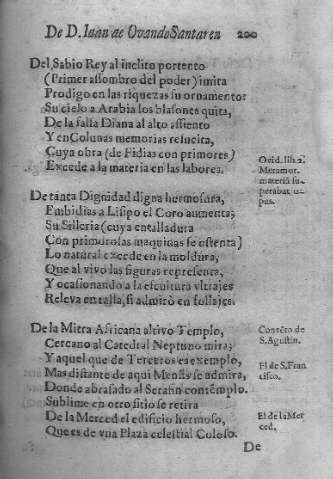 De D. Iuan de Ovando Santaren 200
Del Sabio Rey al inclito portento
(Primer assombro del poder) imita
Prodigo en las riquezas su ornamento:
Su cielo a Arabia los blasones quita,
De la falsa Diana al alto assiento
Y en Colunas memorias resucita,
Cuya obra (de Fidias con primores)
Excede a la materia en las labores.
Ovid. lib. 2.
Metamor.
materiã su-
perabat o-
pus.
De tanta Dignidad digna hermosura,
Embidias a Lisipo el Coro aumenta;
Su Silleria (cuya entalladura
Con primorosas maquinas se ostenta)
Lo natural excede en la moldura,
Que al vivo las figuras representa,
Y ocasionando a la escultura vltrajes
Releva en talla, si admirò en follajes.
De la Mitra Africana altivo Templo,
Cercano al Catedral Neptuno mira;
Y aquel que de Terceros es exemplo,
Mas distante de aqui Menfis se admira,
Donde abrasado al Serafin contẽmplo.
Sublime en otro sitio se retira
De la Merced el edificio hermoso,
Que es de vna Plaza celestial Coloso.
Convẽto de
S. Agustin.
El de S. Fran
cisco.
El de la Mer
ced.
De